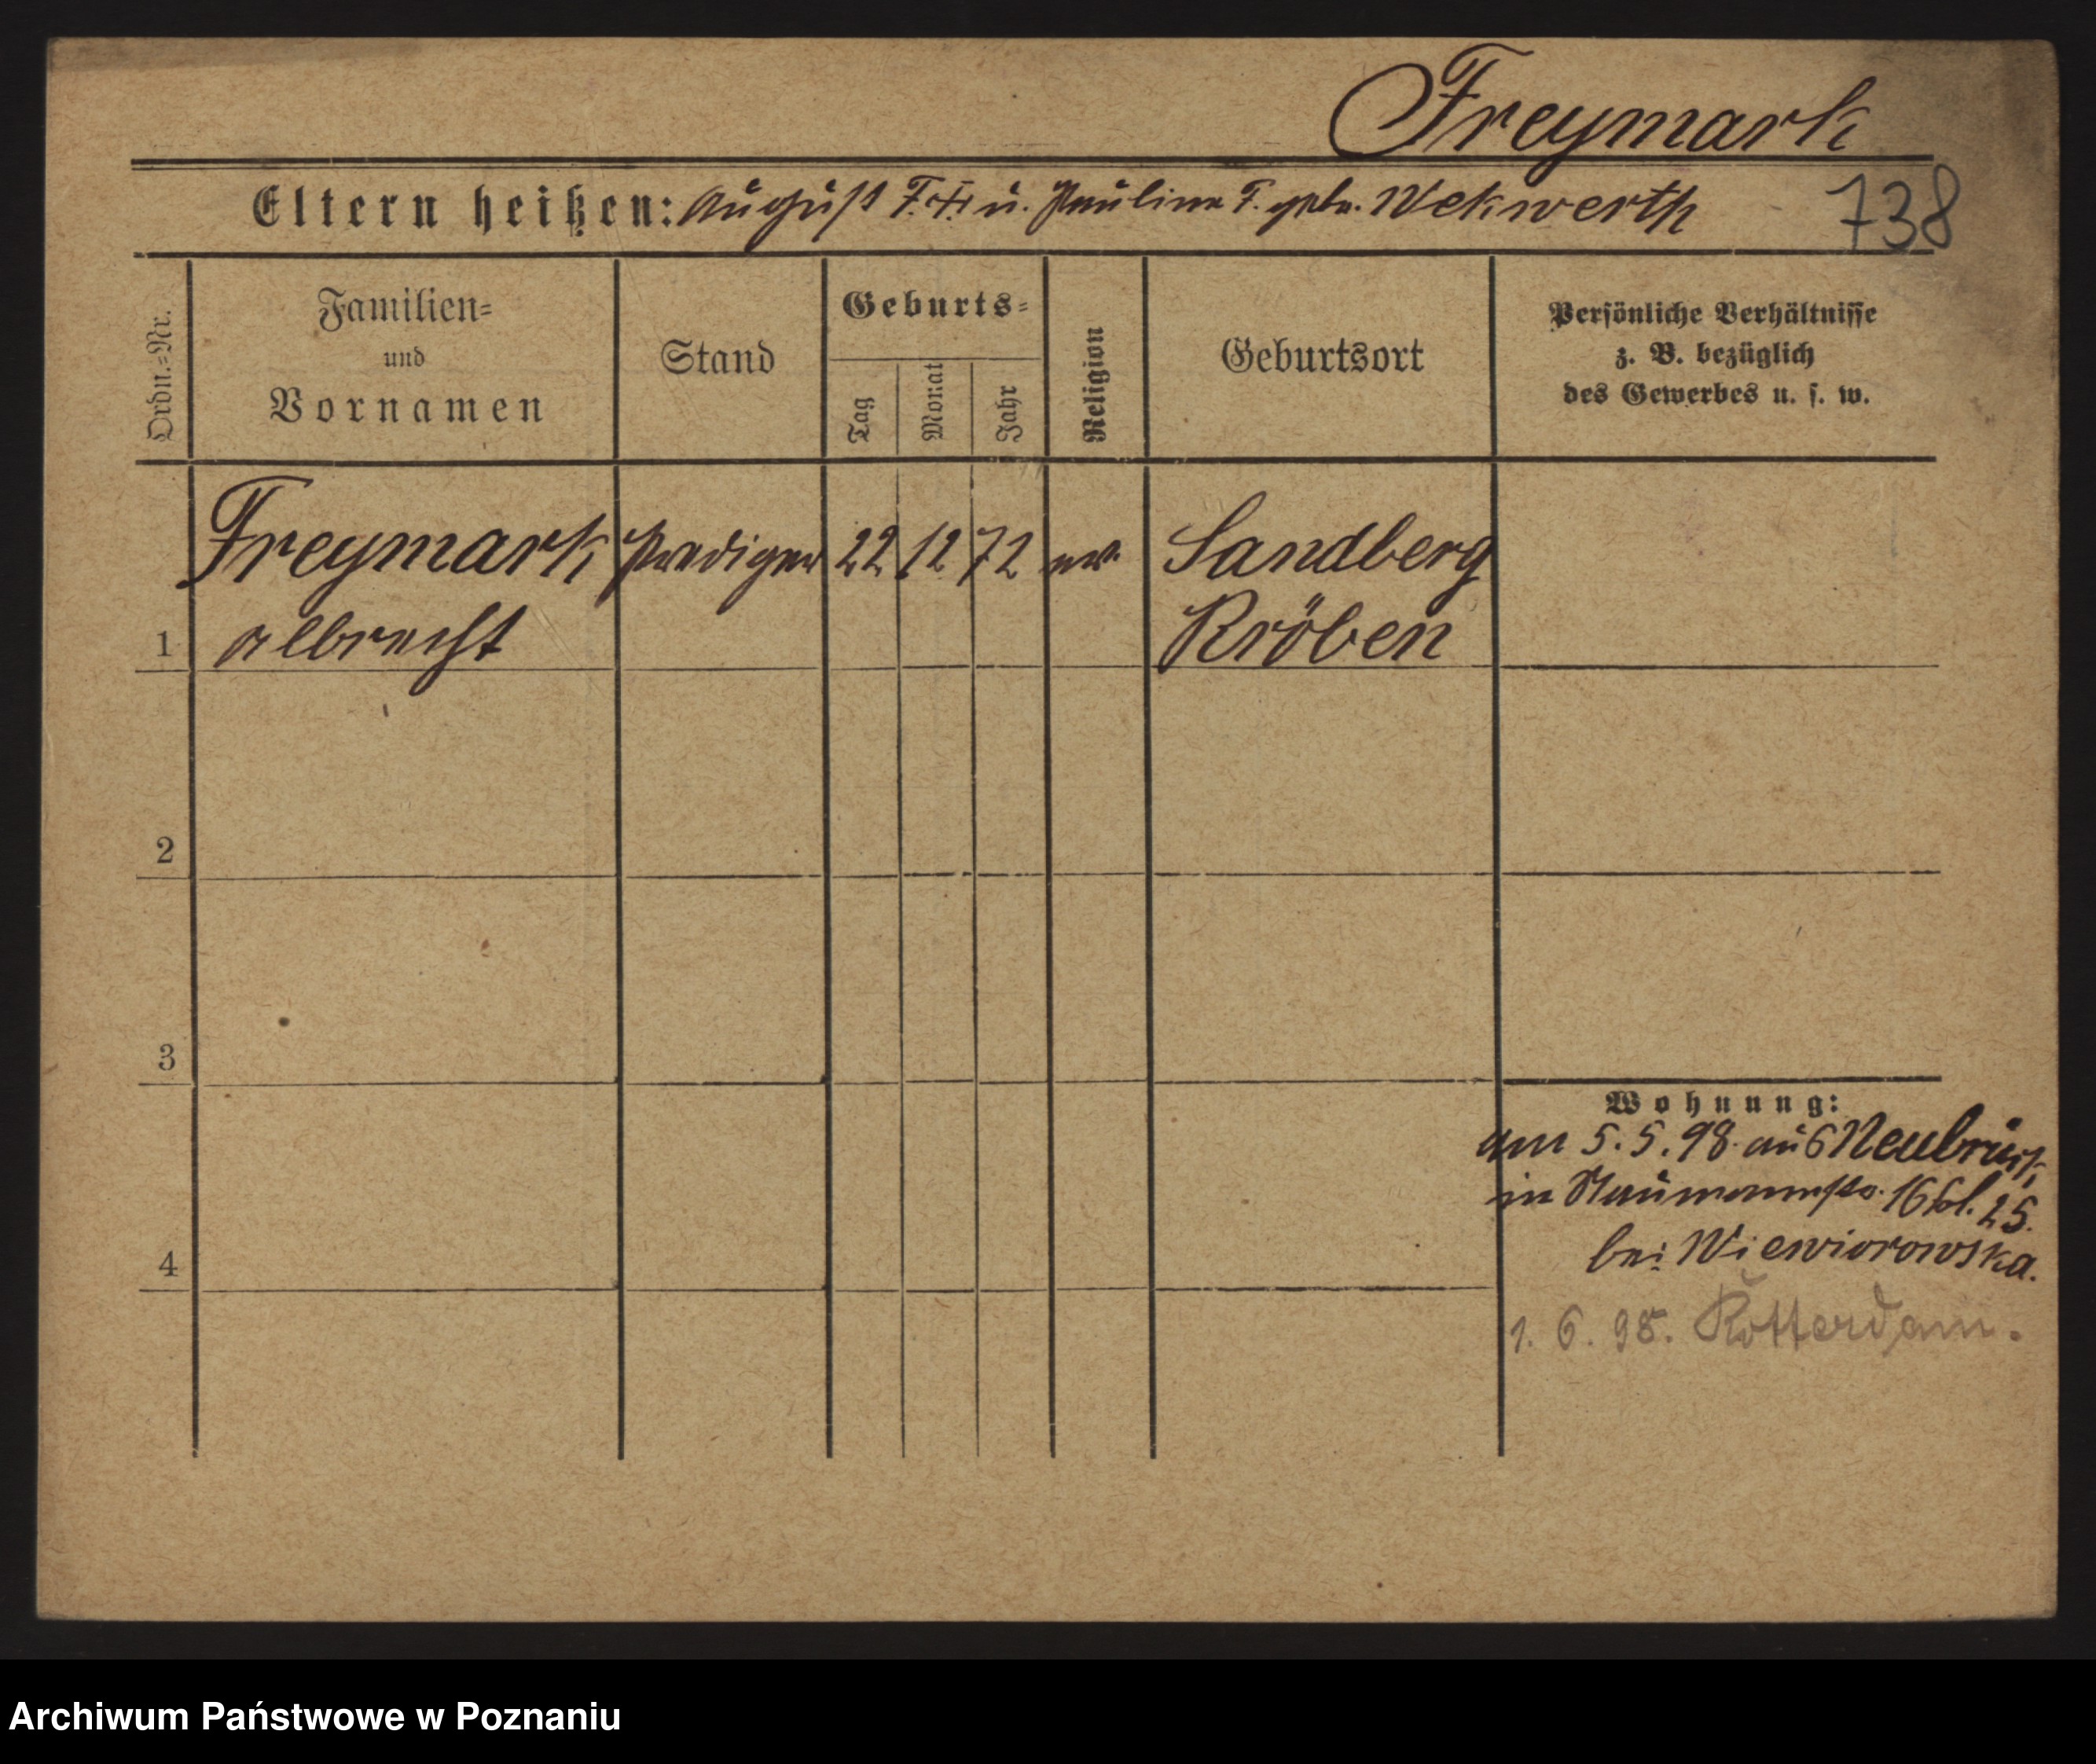 Freymark
Eltern heißen: August F. u. Pauline F. geb. Wekwerth 738
Ordn.=Nr.
Familien=
und
Vornamen
Stand
Geburts=
Tag
Monat
Jahr
Religion
Geburtsort
Persönliche Verhältnisse
z. B. bezüglich
des Gewerbes u. s. w.
Freymark Prediger 22 12 72 ev. Sandberg
1 Albrecht Kröben
2
3
Wohnung:
am 5.5.98 aus Neubrück
in Naumannstr. 16 bl. 25.
bei Wiewiorowska.
4
1. 6. 98. Rotterdam.
Archiwum Państwowe w Poznaniu